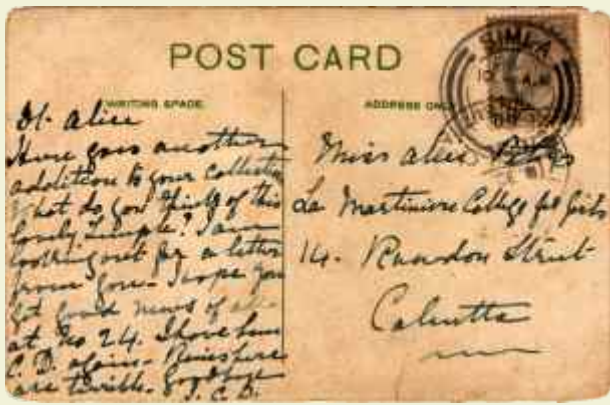 POST CARD
WRITING SPACE.
ADDRESS ONLY
SIMLA
Dr. Alice
Here goes another
addition to your collection
What do you think of this
lovely Temple? I am
looking out for a letter
from you. I hope you
got good news of
at No 24. I have been
C. D. again. Rains here
are terrible. Goodbye
J. C. D.
Miss Alice
La Martiniere College for Girls
14. Rawdon Street
Calcutta